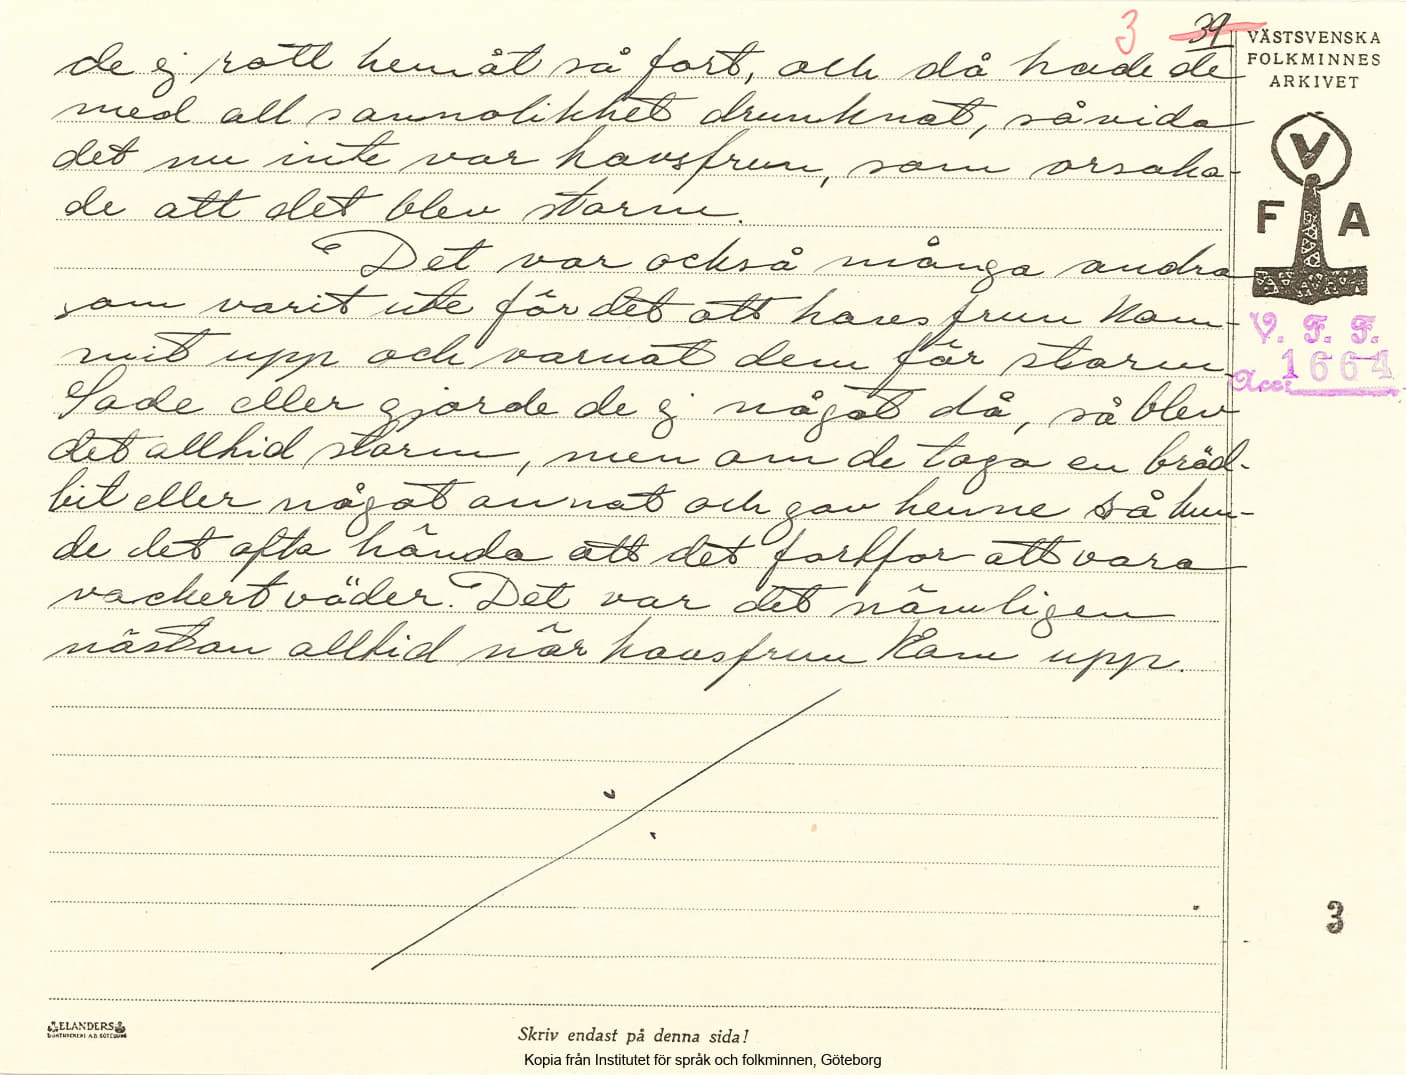 3 39
VÄSTSVENSKA
FOLKMINNES
ARKIVET
V
F A
V. F. F.
Acc: 1664
de ej rott hemåt så fort, och då hade de
med all sannolikhet drunknat, såvida
det nu inte var havsfrun, som orsaka-
de att det blev storm.
Det var också många andra
som varit ute för det att havsfrun kom-
mit upp och varnat dem för storm.
Sade eller gjorde de ej något då, så blev
det alltid storm, men om de toga en bräd-
bit eller något annat och gav henne så kun-
de det ofta hända att det fortfor att vara
vackert väder. Det var det nämligen
nästan alltid när havsfrun kom upp.
3
ELANDERS
BOKTRYCKERI A.B. GÖTEBORG
Skriv endast på denna sida!
Kopia från Institutet för språk och folkminnen, Göteborg